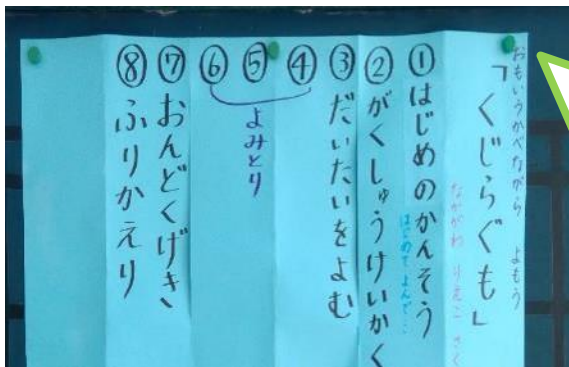 おもいうかべながら よもう
「くじらぐも」
なかがわ りえこ さく
①はじめのかんそう
はじめて よんで…
②がくしゅうけいかく
③だいたいをよむ
④
⑤よみとり
⑥
⑦おんどくげき
⑧ふりかえり